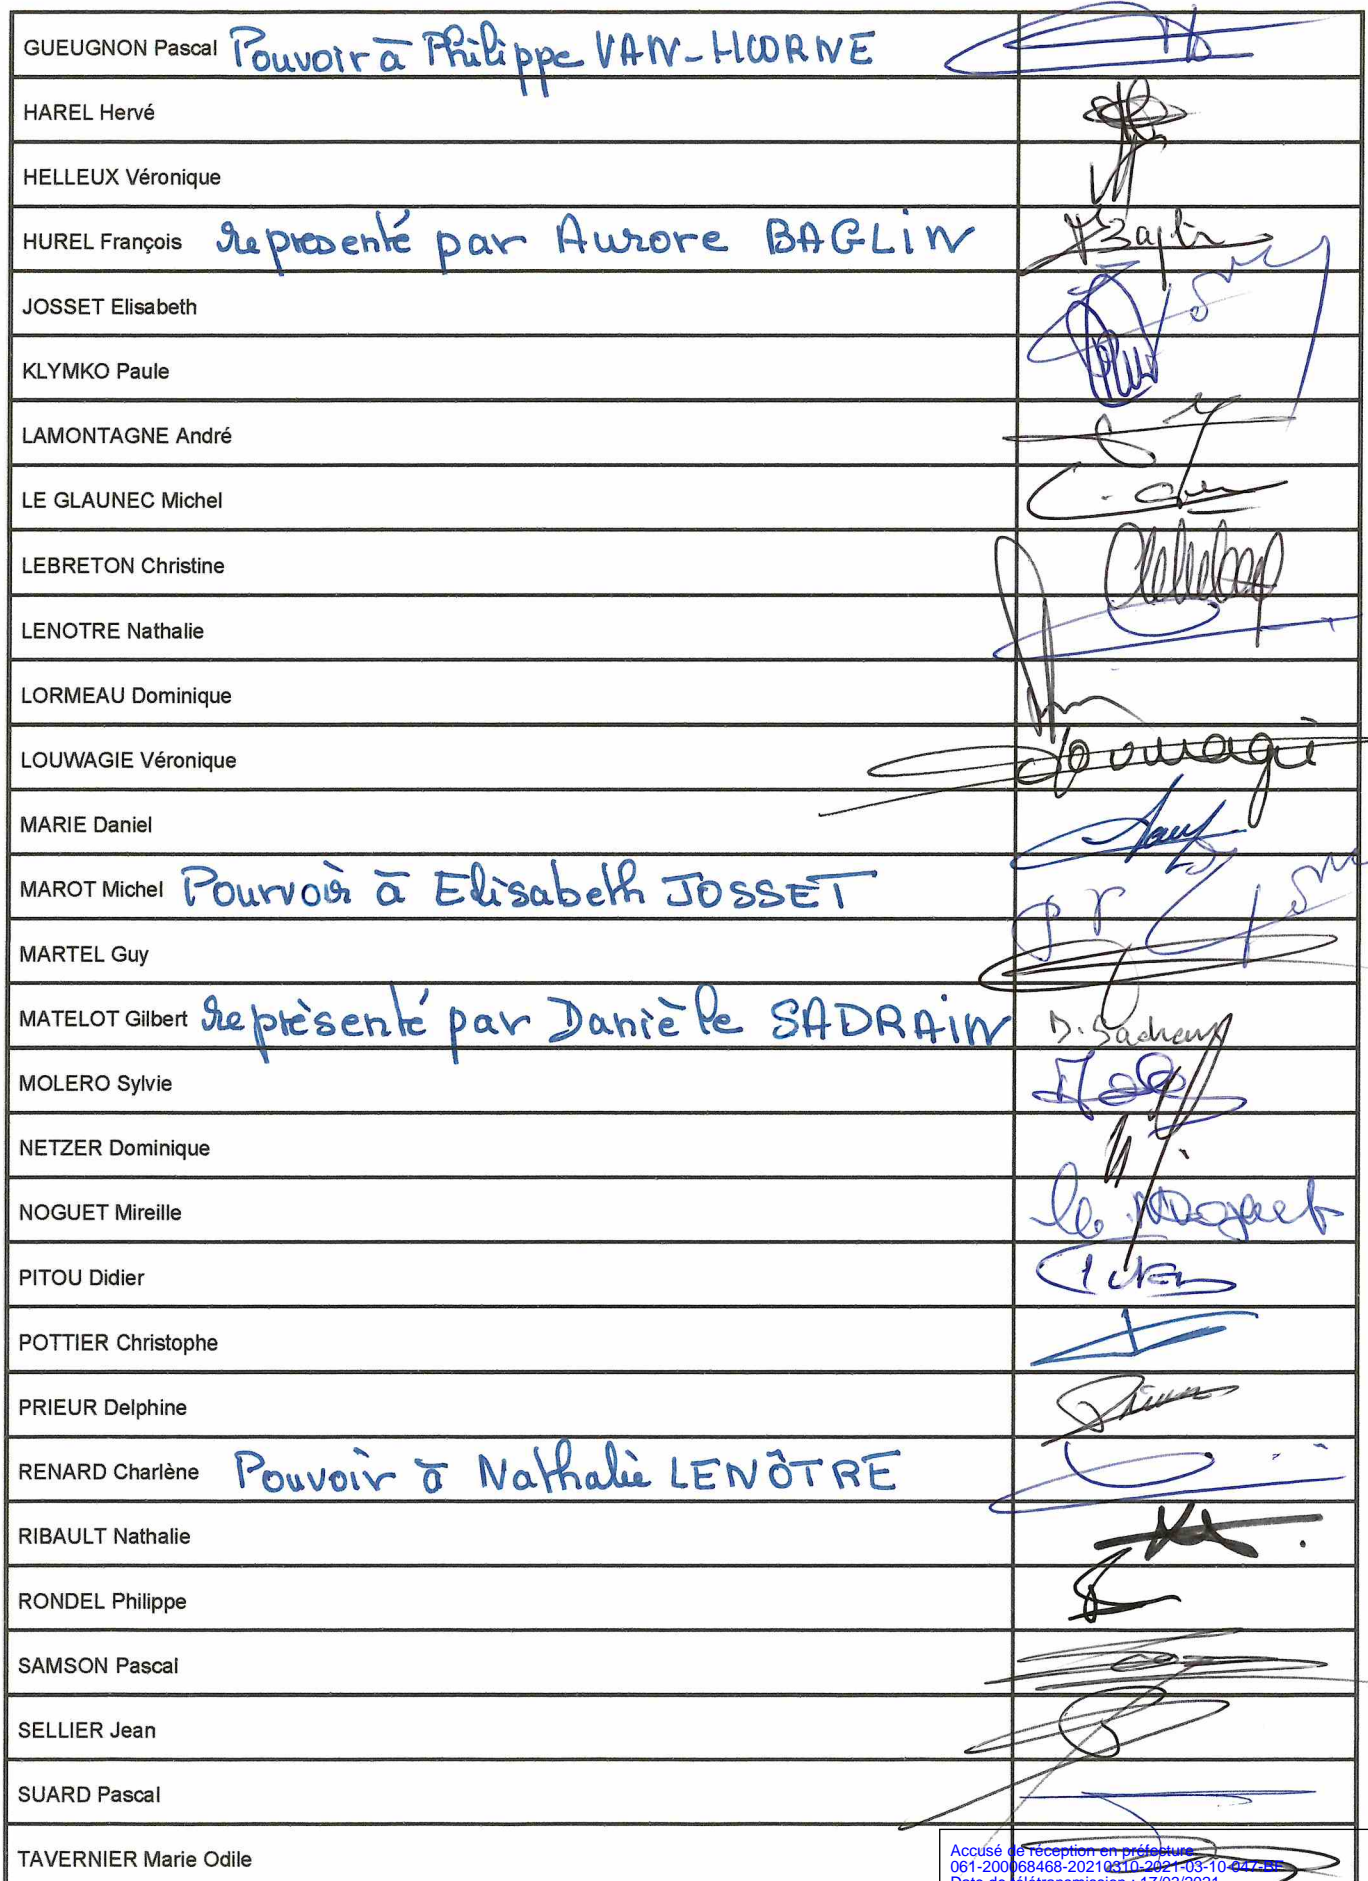 GUEUGNON Pascal Pouvoir à Philippe VAN-HOORNE
HAREL Hervé
HELLEUX Véronique
HUREL François représenté par Aurore BAGLIN
JOSSET Elisabeth
KLYMKO Paule
LAMONTAGNE André
LE GLAUNEC Michel
LEBRETON Christine
LENOTRE Nathalie
LORMEAU Dominique
LOUWAGIE Véronique
MARIE Daniel
MAROT Michel Pourvoir à Elisabeth JOSSET
MARTEL Guy
MATELOT Gilbert représenté par Danièle SADRAIN
MOLERO Sylvie
NETZER Dominique
NOGUET Mireille
PITOU Didier
POTTIER Christophe
PRIEUR Delphine
RENARD Charlène Pouvoir à Nathalie LENÔTRE
RIBAULT Nathalie
RONDEL Philippe
SAMSON Pascal
SELLIER Jean
SUARD Pascal
TAVERNIER Marie Odile
Accusé de réception en préfecture
061-200068468-20210310-2021-03-10-047-BF
Date de télétransmission : 17/03/2021